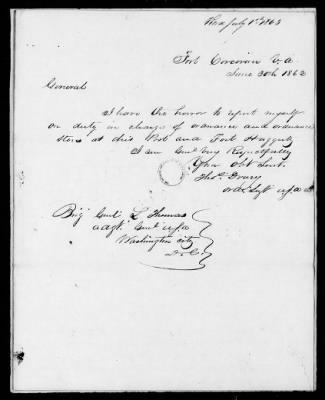 Rec July 1st 1862
Fort Corcoran V.A.
June 30th 1862
General
I have the honor to report myself
on duty in charge of ordnance and ordnance
stores at this Post and Fort Haggerty
I am Genl Very Respectfully
Your Obt Servt.
Thos. Drury
Ord. Sergt U.S.A
Brig Genl L Thomas
Adgt. Genl U.S.A
Washington City
D.C.